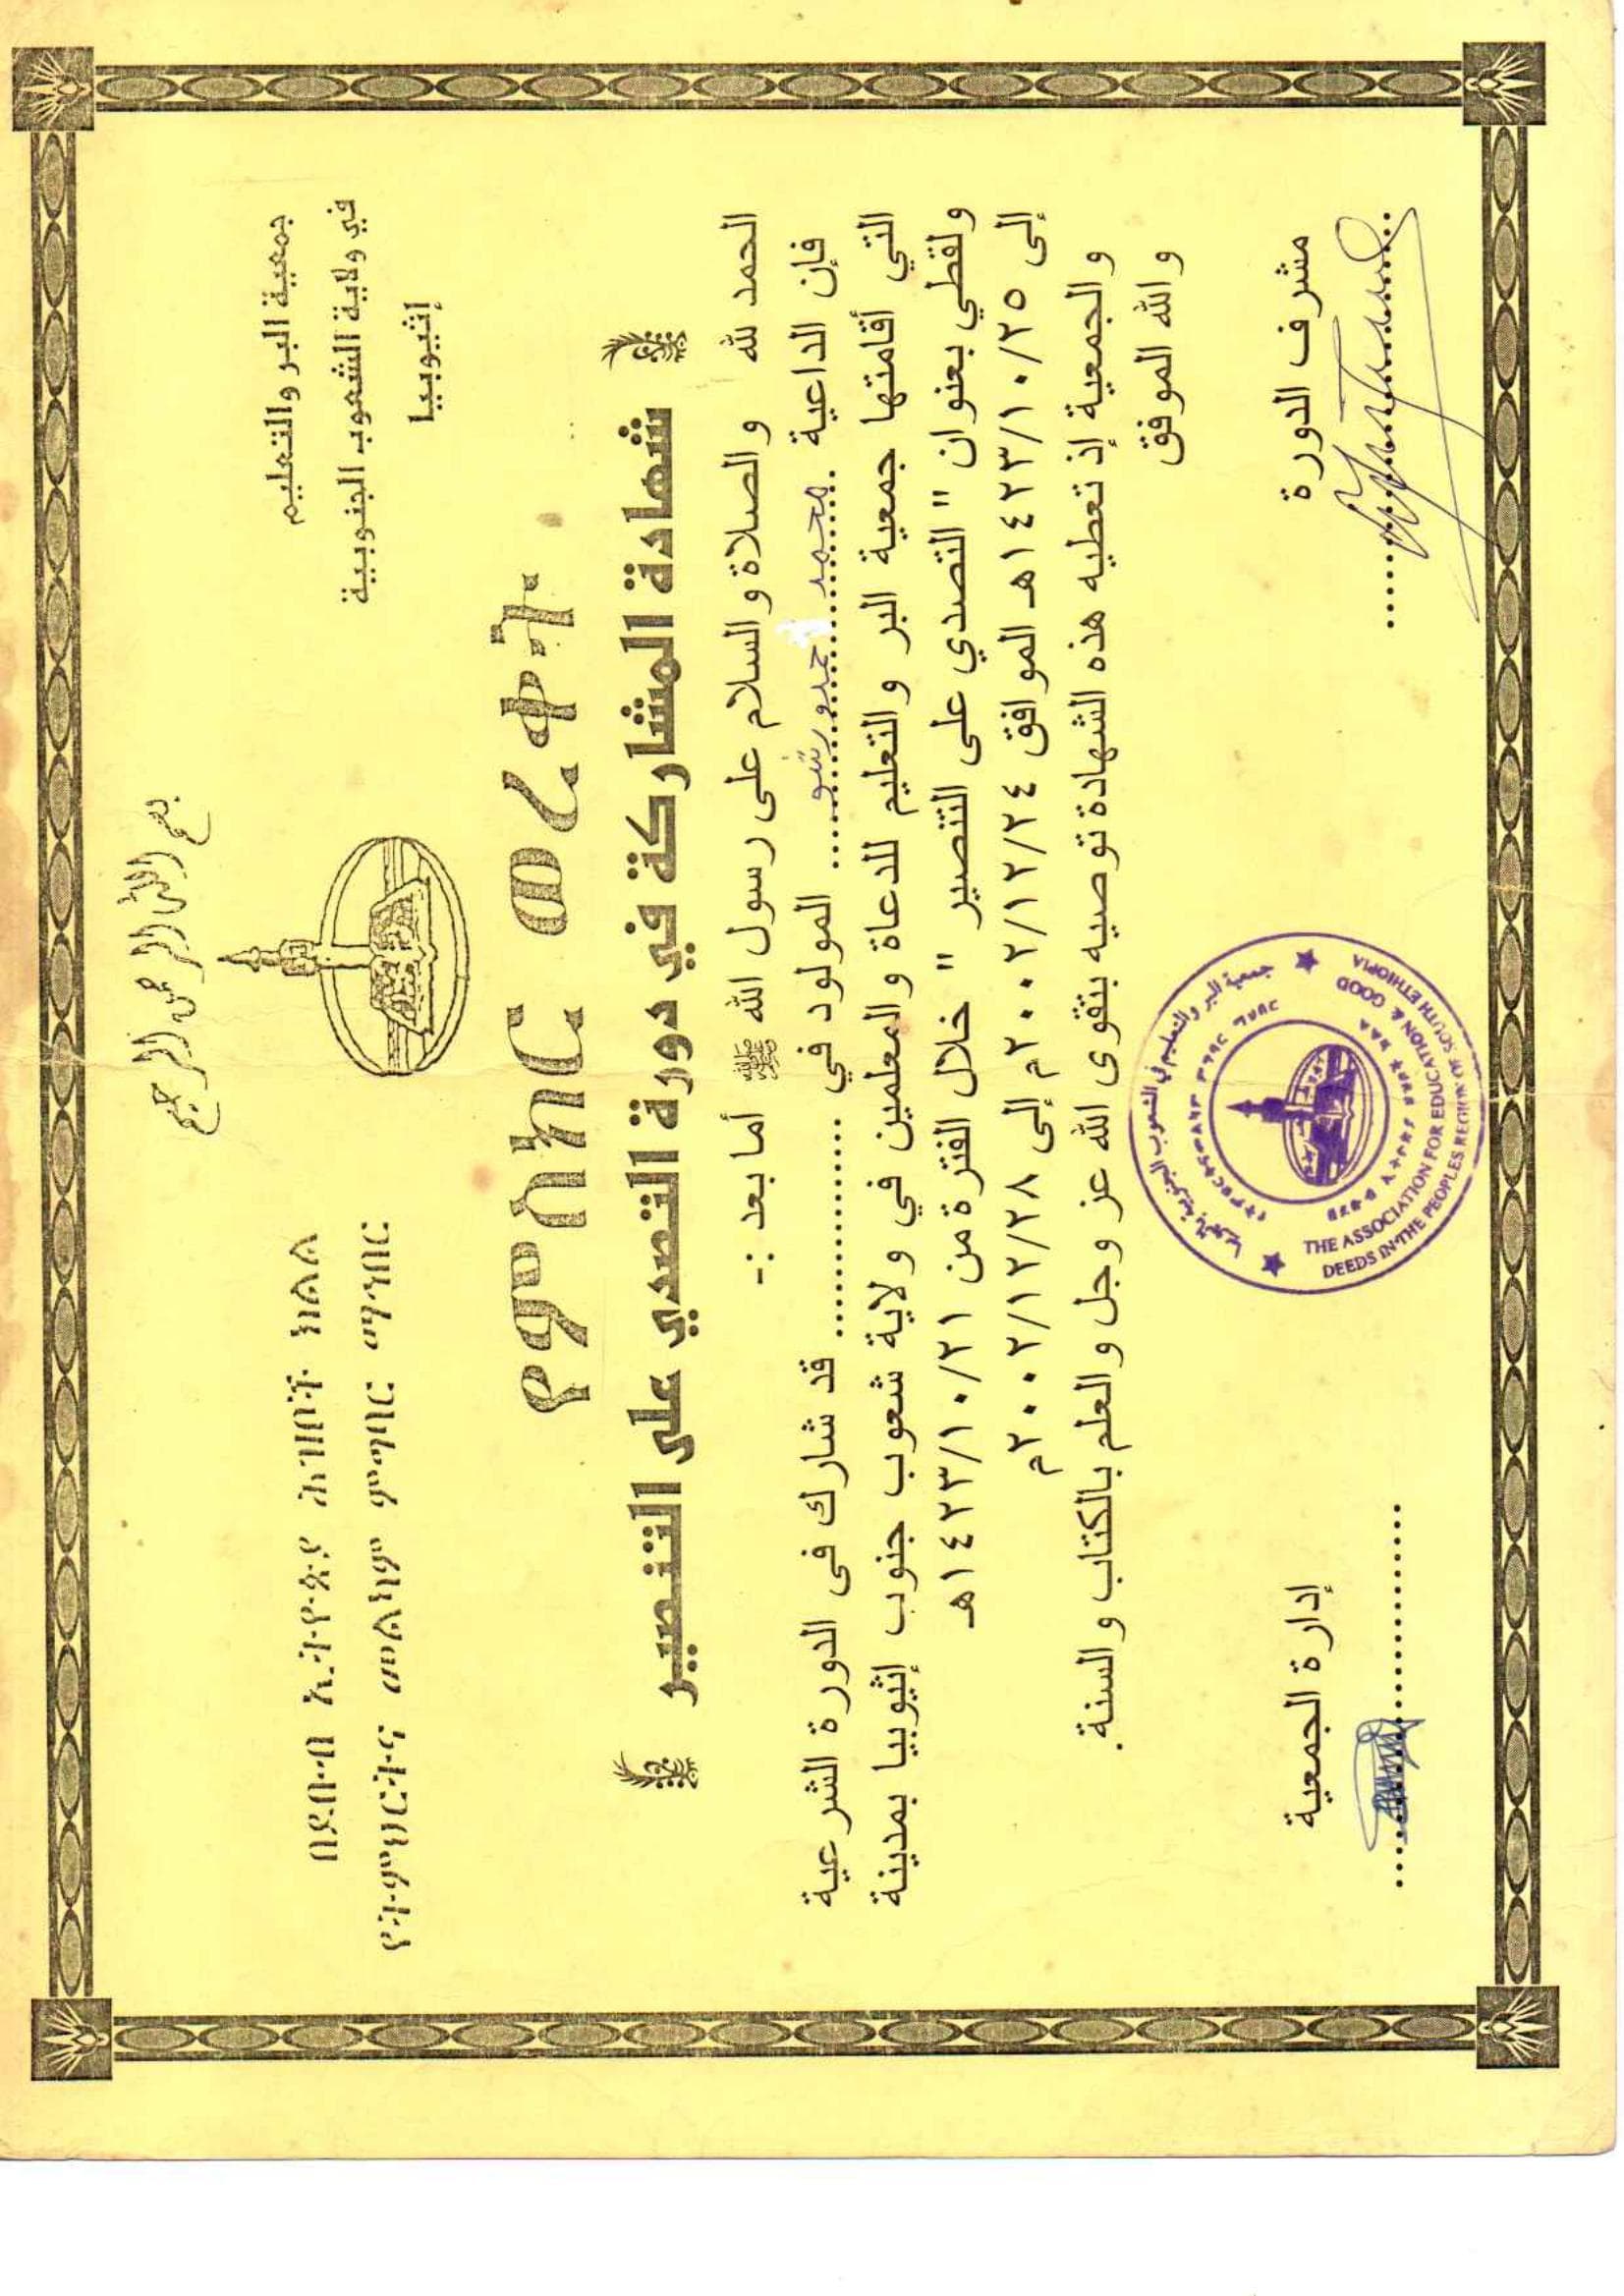 بسم الله الرحمن الرحيم
جمعية البر والتعليم
في ولاية الشعوب الجنوبية
إثيوبيا
በደቡብ ኢትዮጵያ ሕዝቦች ክልል
የትምህርትና መልካም ምግባር ማኅበር
የምስክር ወረቀት
شهادة المشاركة في دورة التصدي على التنصير
الحمد لله والصلاة والسلام على رسول الله ﷺ أما بعد :-
فإن الداعية محمد حمدو رشو المولود في .................. قد شارك فى الدورة الشرعية
التي أقامتها جمعية البر والتعليم للدعاة والمعلمين في ولاية شعوب جنوب إثيوبيا بمدينة
ولقطي بعنوان " التصدي على التنصير " خلال الفترة من ١٤٢٣/١٠/٢١هـ
إلى ١٤٢٣/١٠/٢٥هـ الموافق ٢٠٠٢/١٢/٢٤م إلى ٢٠٠٢/١٢/٢٨م
والجمعية إذ تعطيه هذه الشهادة توصيه بتقوى الله عز وجل والعلم بالكتاب والسنة.
والله الموفق
مشرف الدورة
إدارة الجمعية
جمعية البر والتعليم في الشعوب الجنوبية بإثيوبيا
THE ASSOCIATION FOR EDUCATION & GOOD
DEEDS IN THE PEOPLES REGION OF SOUTH ETHIOPIA